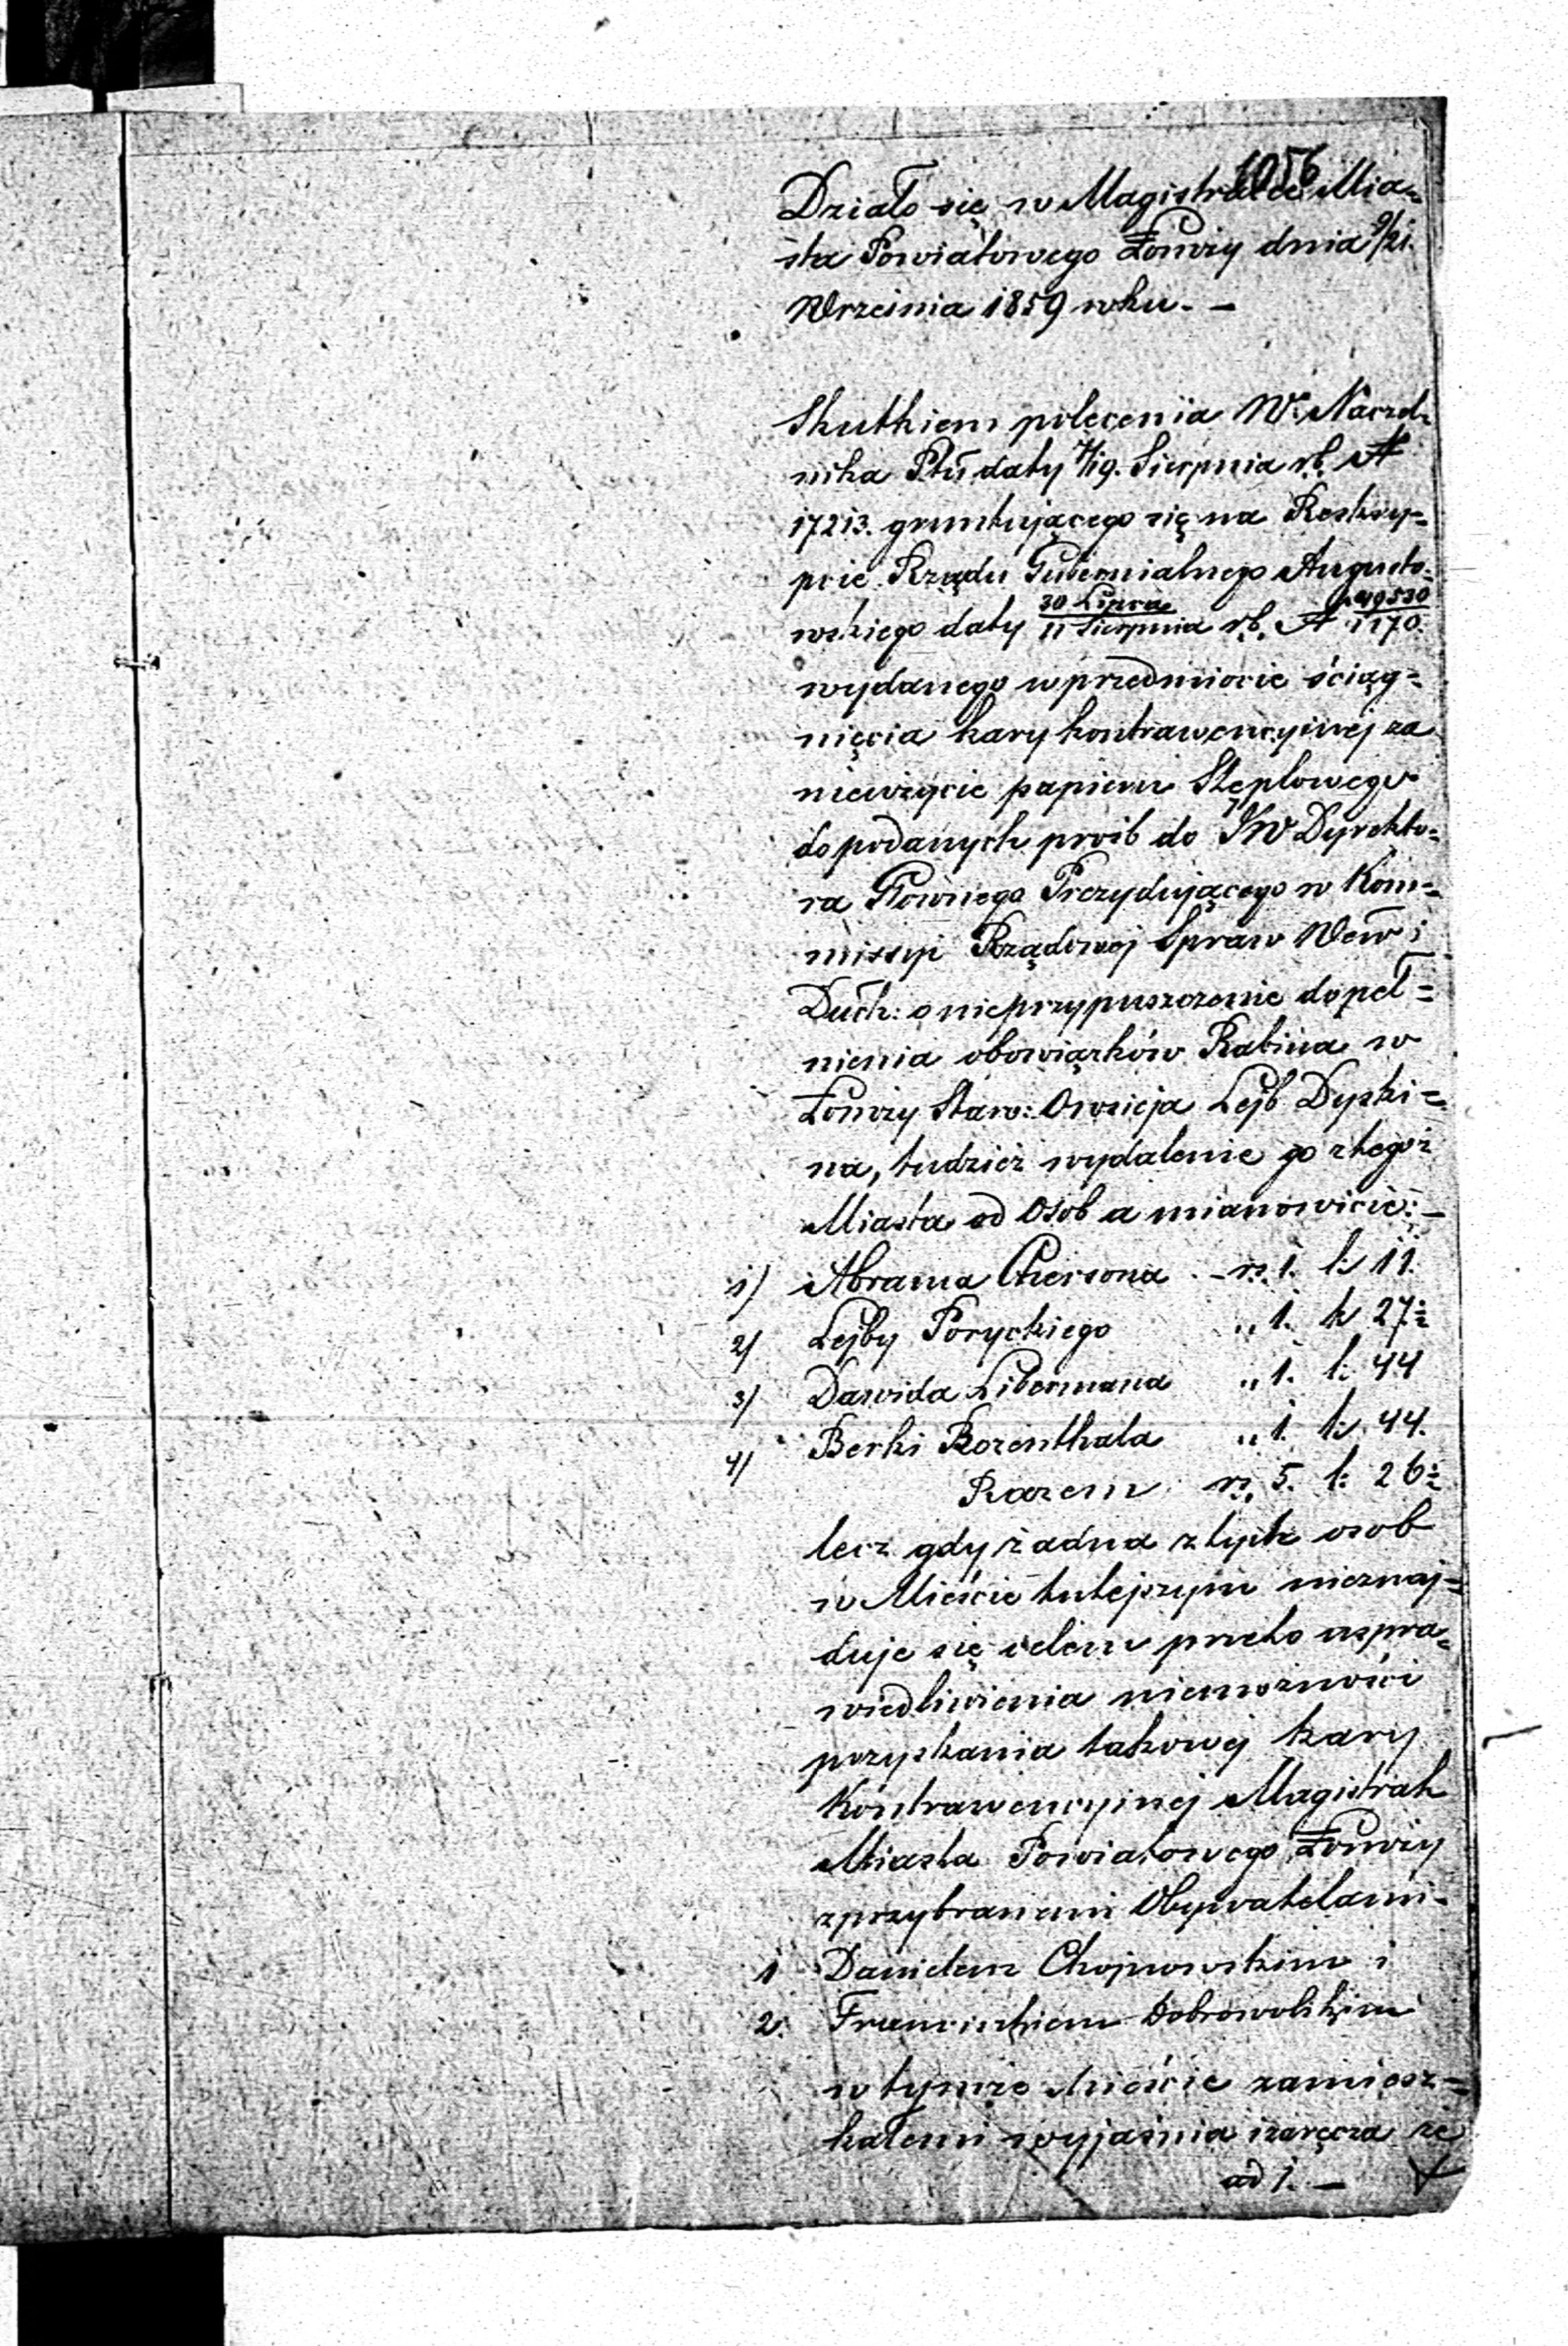 1056
Działo się w Magistracie Mia=
sta Powiatowego Łomży dnia 9/21.
Września 1859 roku. —
Skutkiem polecenia W. Naczel=
nika Ptu daty 7/19. Sierpnia r.b. N
17213. gruntującego się na Reskry=
pcie Rządu Gubernialnego Augusto=
wskiego daty 30 Lipca / 11 Sierpnia r.b. N 49530 / 1170.
wydanego w przedmiocie ściąg=
nięcia kary kontrawencyinej za
nieużycie papieru Stęplowego
do podanych prośb do JW Dyrekto=
ra Głównego Prezydującego w Kom=
missyi Rządowej Spraw Wew i
Duch: o nieprzypuszczenie do peł=
nienia obowiązków Rabina w
Łomży Staro: Owsieja Lejb Dyski=
na, tudzież wydalenie go z tegoż
Miasta od Osob a mianowicie: —
1) Abrama Chersona — rs. 1. k. 11.
2) Lejby Poryckiego „ 1. k 27½
3) Dawida Libermana „ 1. k. 44
4) Berki Rozenthala „ 1. k. 44.
Razem rs. 5. k. 26½
lecz gdy żadna z tych osob
w Mieście tutejszym nieznaj=
duje się celem przeto uspra=
wiedliwienia niemożności
pozyskania takowej kary
Kontrawencyjnej Magistrat
Miasta Powiatowego Łomży
z przybranemi Obywatelami —
1 Danielem Chojnowskim i
2. Franciszkiem Dobrowolskim
w tymże Mieście zamiesz=
kałemi wyjaśnia i zaręcza że
ad 1. —